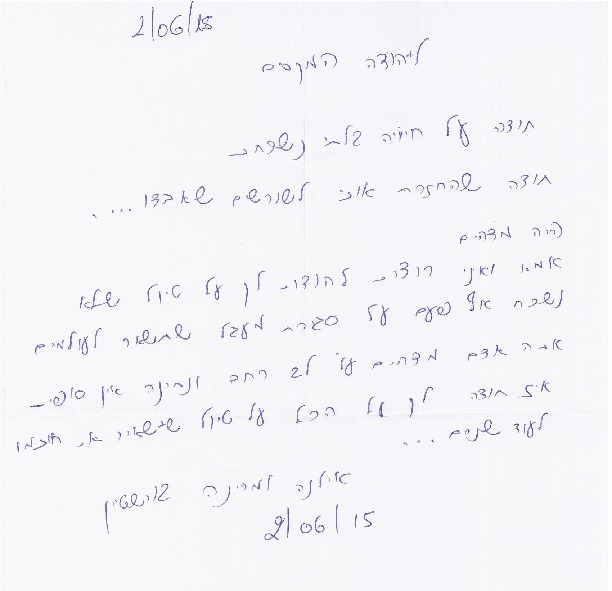 2/06/15
ליהודה המקסים
תודה על חוויה בלתי נשכחת
תודה שהחזרת אותי לשורשים שאבדו....
היה מדהים
אמא ואני רוצות להודות לך על טיול שלא
נשכח אף פעם על סגירת מעגל שתשאר לעולמים
אתה אדם מדהים עם לב רחב ונתינה אין סופית
אז תודה לך על הכל על טיול שישאיר את חותמו
לעוד שנים ...
אילנה ומרינה
2/06/15